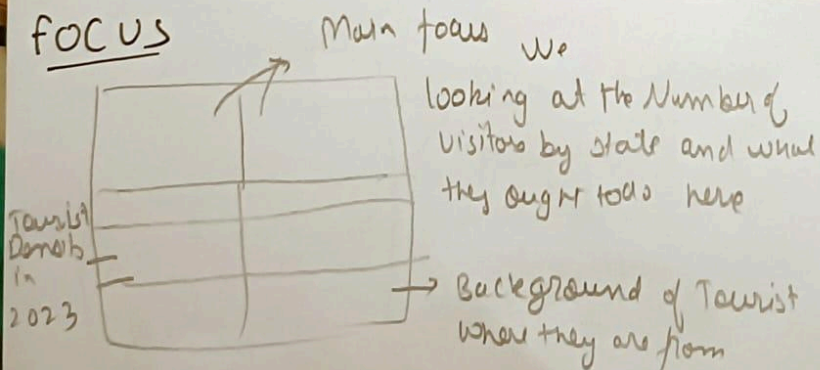 FOCUS
Main focus We
looking at the Number of
visitors by state and what
they ought todo here
Tourist
in
2023
Background of Tourist
Where they are from